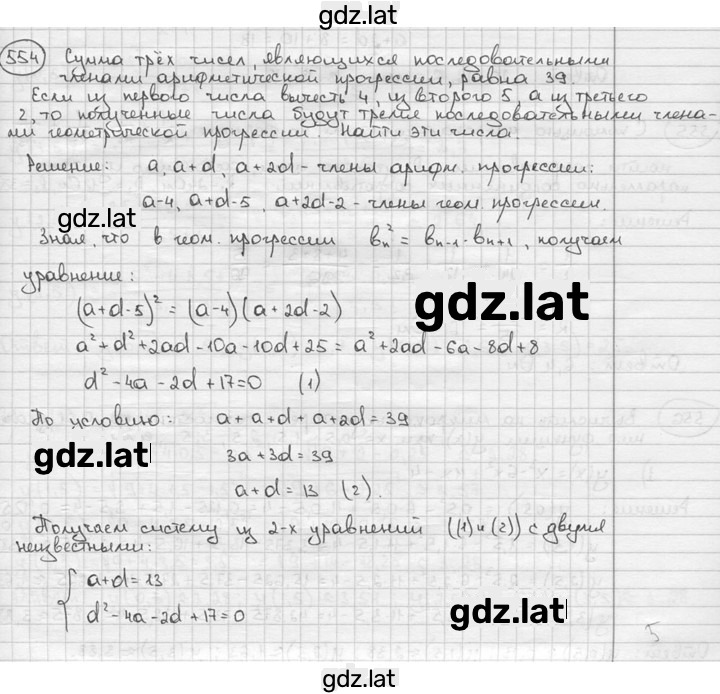 gdz.lat
554 Сумма трёх чисел, являющихся последовательными
членами арифметической прогрессии, равна 39.
Если из первого числа вычесть 4, из второго 5, а из третьего
2, то полученные числа будут тремя последовательными члена-
ми геометрической прогрессии. Найти эти числа.
Решение: a, a+d, a+2d - члены арифм. прогрессии:
a-4, a+d-5, a+2d-2 - члены геом. прогрессии.
gdz.lat
Зная, что в геом. прогрессии bₙ² = bₙ₋₁·bₙ₊₁, получаем
уравнение:
(a+d-5)² = (a-4)(a+2d-2)
gdz.lat
a²+d²+2ad-10a-10d+25 = a²+2ad-6a-8d+8
d²-4a-2d+17=0 (1)
По условию: a+a+d+a+2d=39
gdz.lat
3a+3d=39
a+d=13 (2).
Получаем систему из 2-х уравнений ((1) и (2)) с двумя
неизвестными:
{ a+d=13
d²-4a-2d+17=0
gdz.lat
5
gdz.lat